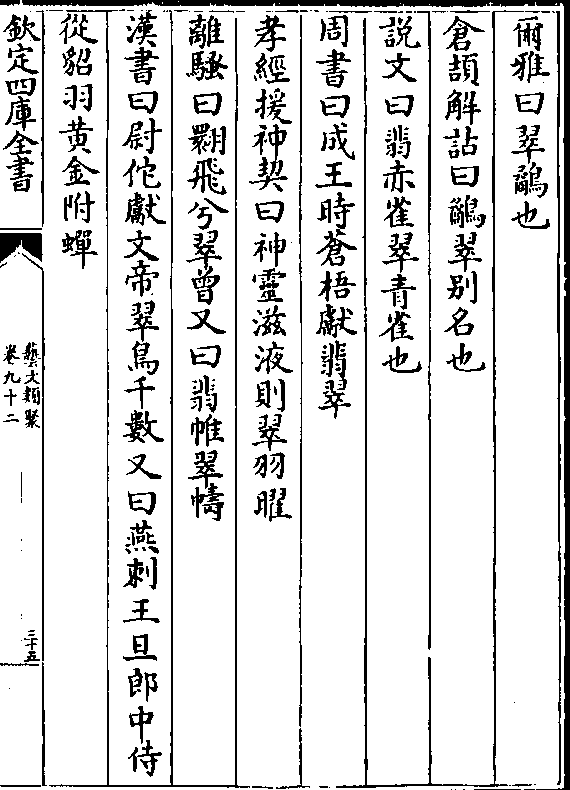 爾雅曰翠鷸也
倉頡解詁曰鷸翠别名也
説文曰翡赤雀翠青雀也
周書曰成王時蒼梧獻翡翠
孝經援神契曰神靈滋液則翠羽曜
離騷曰翾飛兮翠曾又曰翡帷翠幬
漢書曰尉佗獻文帝翠鳥千數又曰燕刺王旦郎中侍
從貂羽黄金附蟬
欽定四庫全書
藝文類聚
卷九十二
三十五